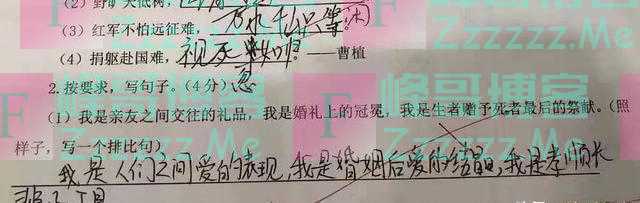 (2)野旷天低树,
(3)红军不怕远征难,万水千山只等闲
(4)捐躯赴国难,视死忽如归 ——曹植
2.按要求,写句子。(4分)
(1)我是亲友之间交往的礼品,我是婚礼上的冠冕,我是生者赠予死者最后的祭献。(照
样子,写一个排比句)
我是人们之间爱的表现,我是婚姻后爱的结晶,我是孝顺长
F 峰哥博客
Zzzzzz.Me
F 峰哥博客
Zzzzzz.Me